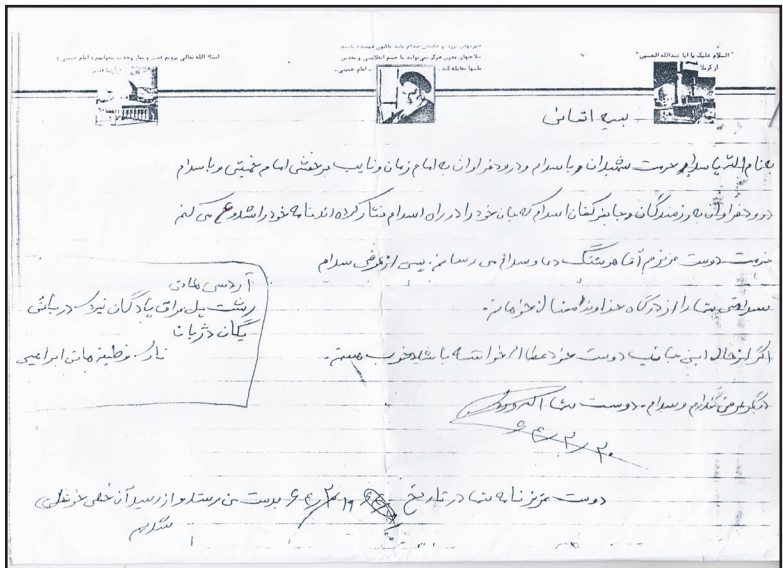 "السلام علیک یا ابا عبدالله الحسین"
از کربلا
باید
با خصم
امام خمینی
انشاء الله تعالی برویم قدس و نماز وحدت بخوانیم ( امام خمینی )
بسمه تعالی
بنام الله پاسدار حرمت شهیدان و با سلام و درود فراوان به امام زمان و نایب برحقش امام خمینی و با سلام
درود فراوان به رزمندگان و جانبرکفان اسلام که جان خود را در راه اسلام نثار کرده اند نامه خود را شروع می کنم
خدمت دوست عزیزم آقا هوشنگ دعا و سلام می رسانم. پس از عرض سلام
سلامتی شما را از درگاه خداوند متعال خواهانم.
اگر از حال این جانب دوست خود عطا الله خواسته باشید خوب هستم.
دیگر عرضی ندارم والسلام. دوست شما
۶۴/۲/۲۰
آدرس
رشت پل عراق پادگان نیروی دریائی
یگان دژبان
ابراهیمی
دوست عزیز نامه شما در تاریخ ۶۴/۲/۱۹ بدست من رسید و از رسید آن خیلی خوشحال
شدم